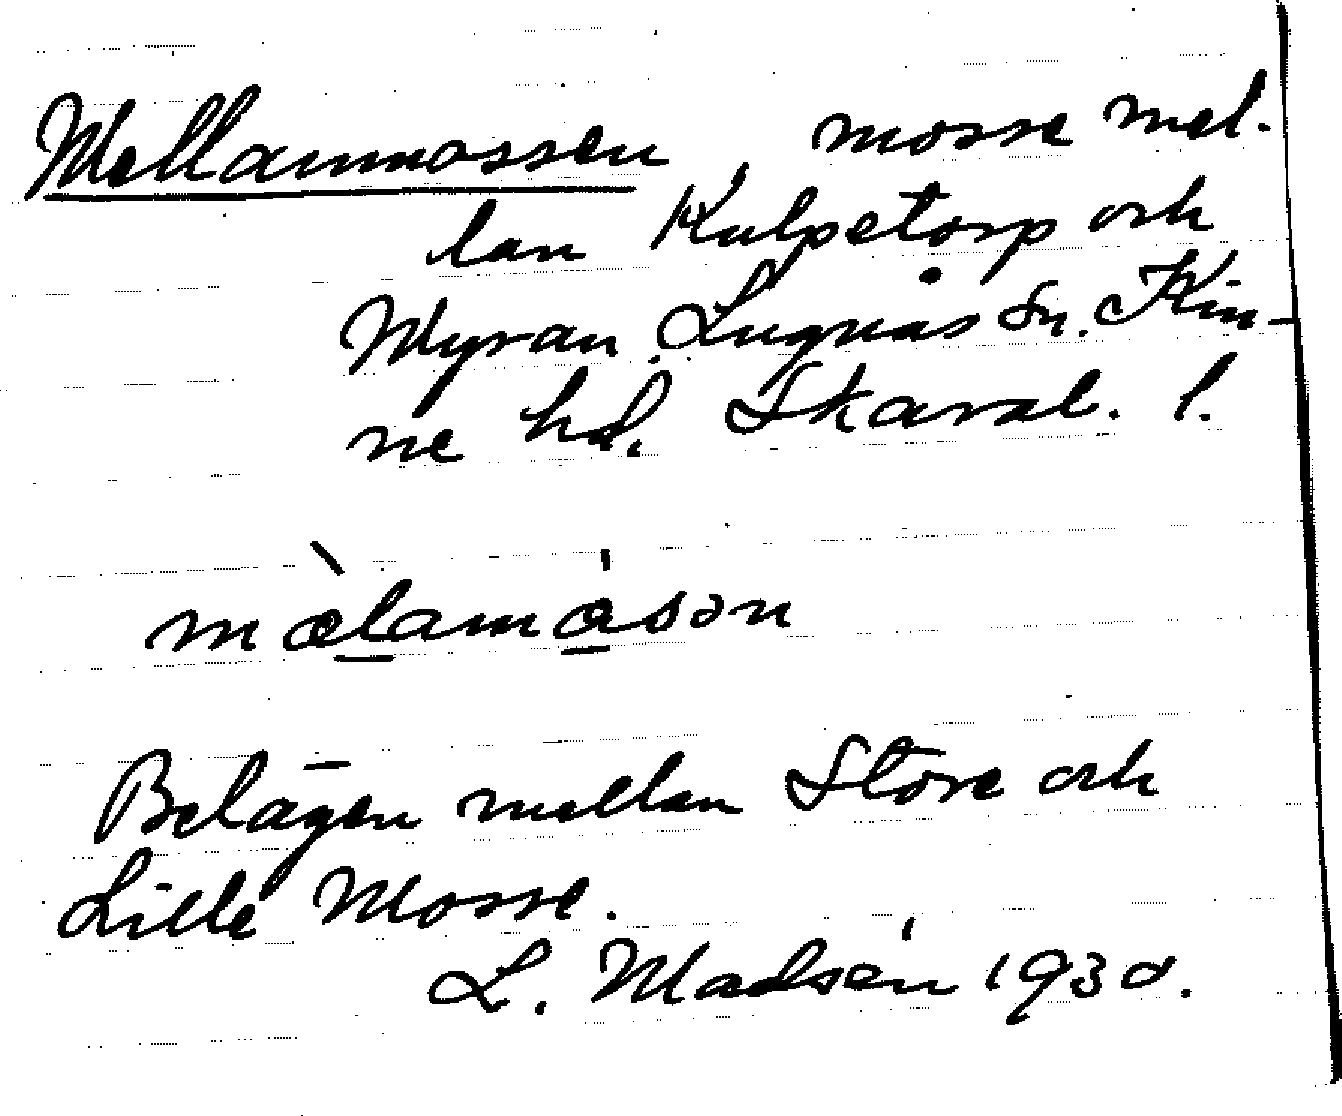 Mellanmossen, mosse mel-
lan Kulpetorp och
Myran. Lugnås sn. Kin-
ne hd. Skarab. l.
mæ̀lamåsən
Belägen mellan Store och
Lille Mosse.
L. Madsén 1930.